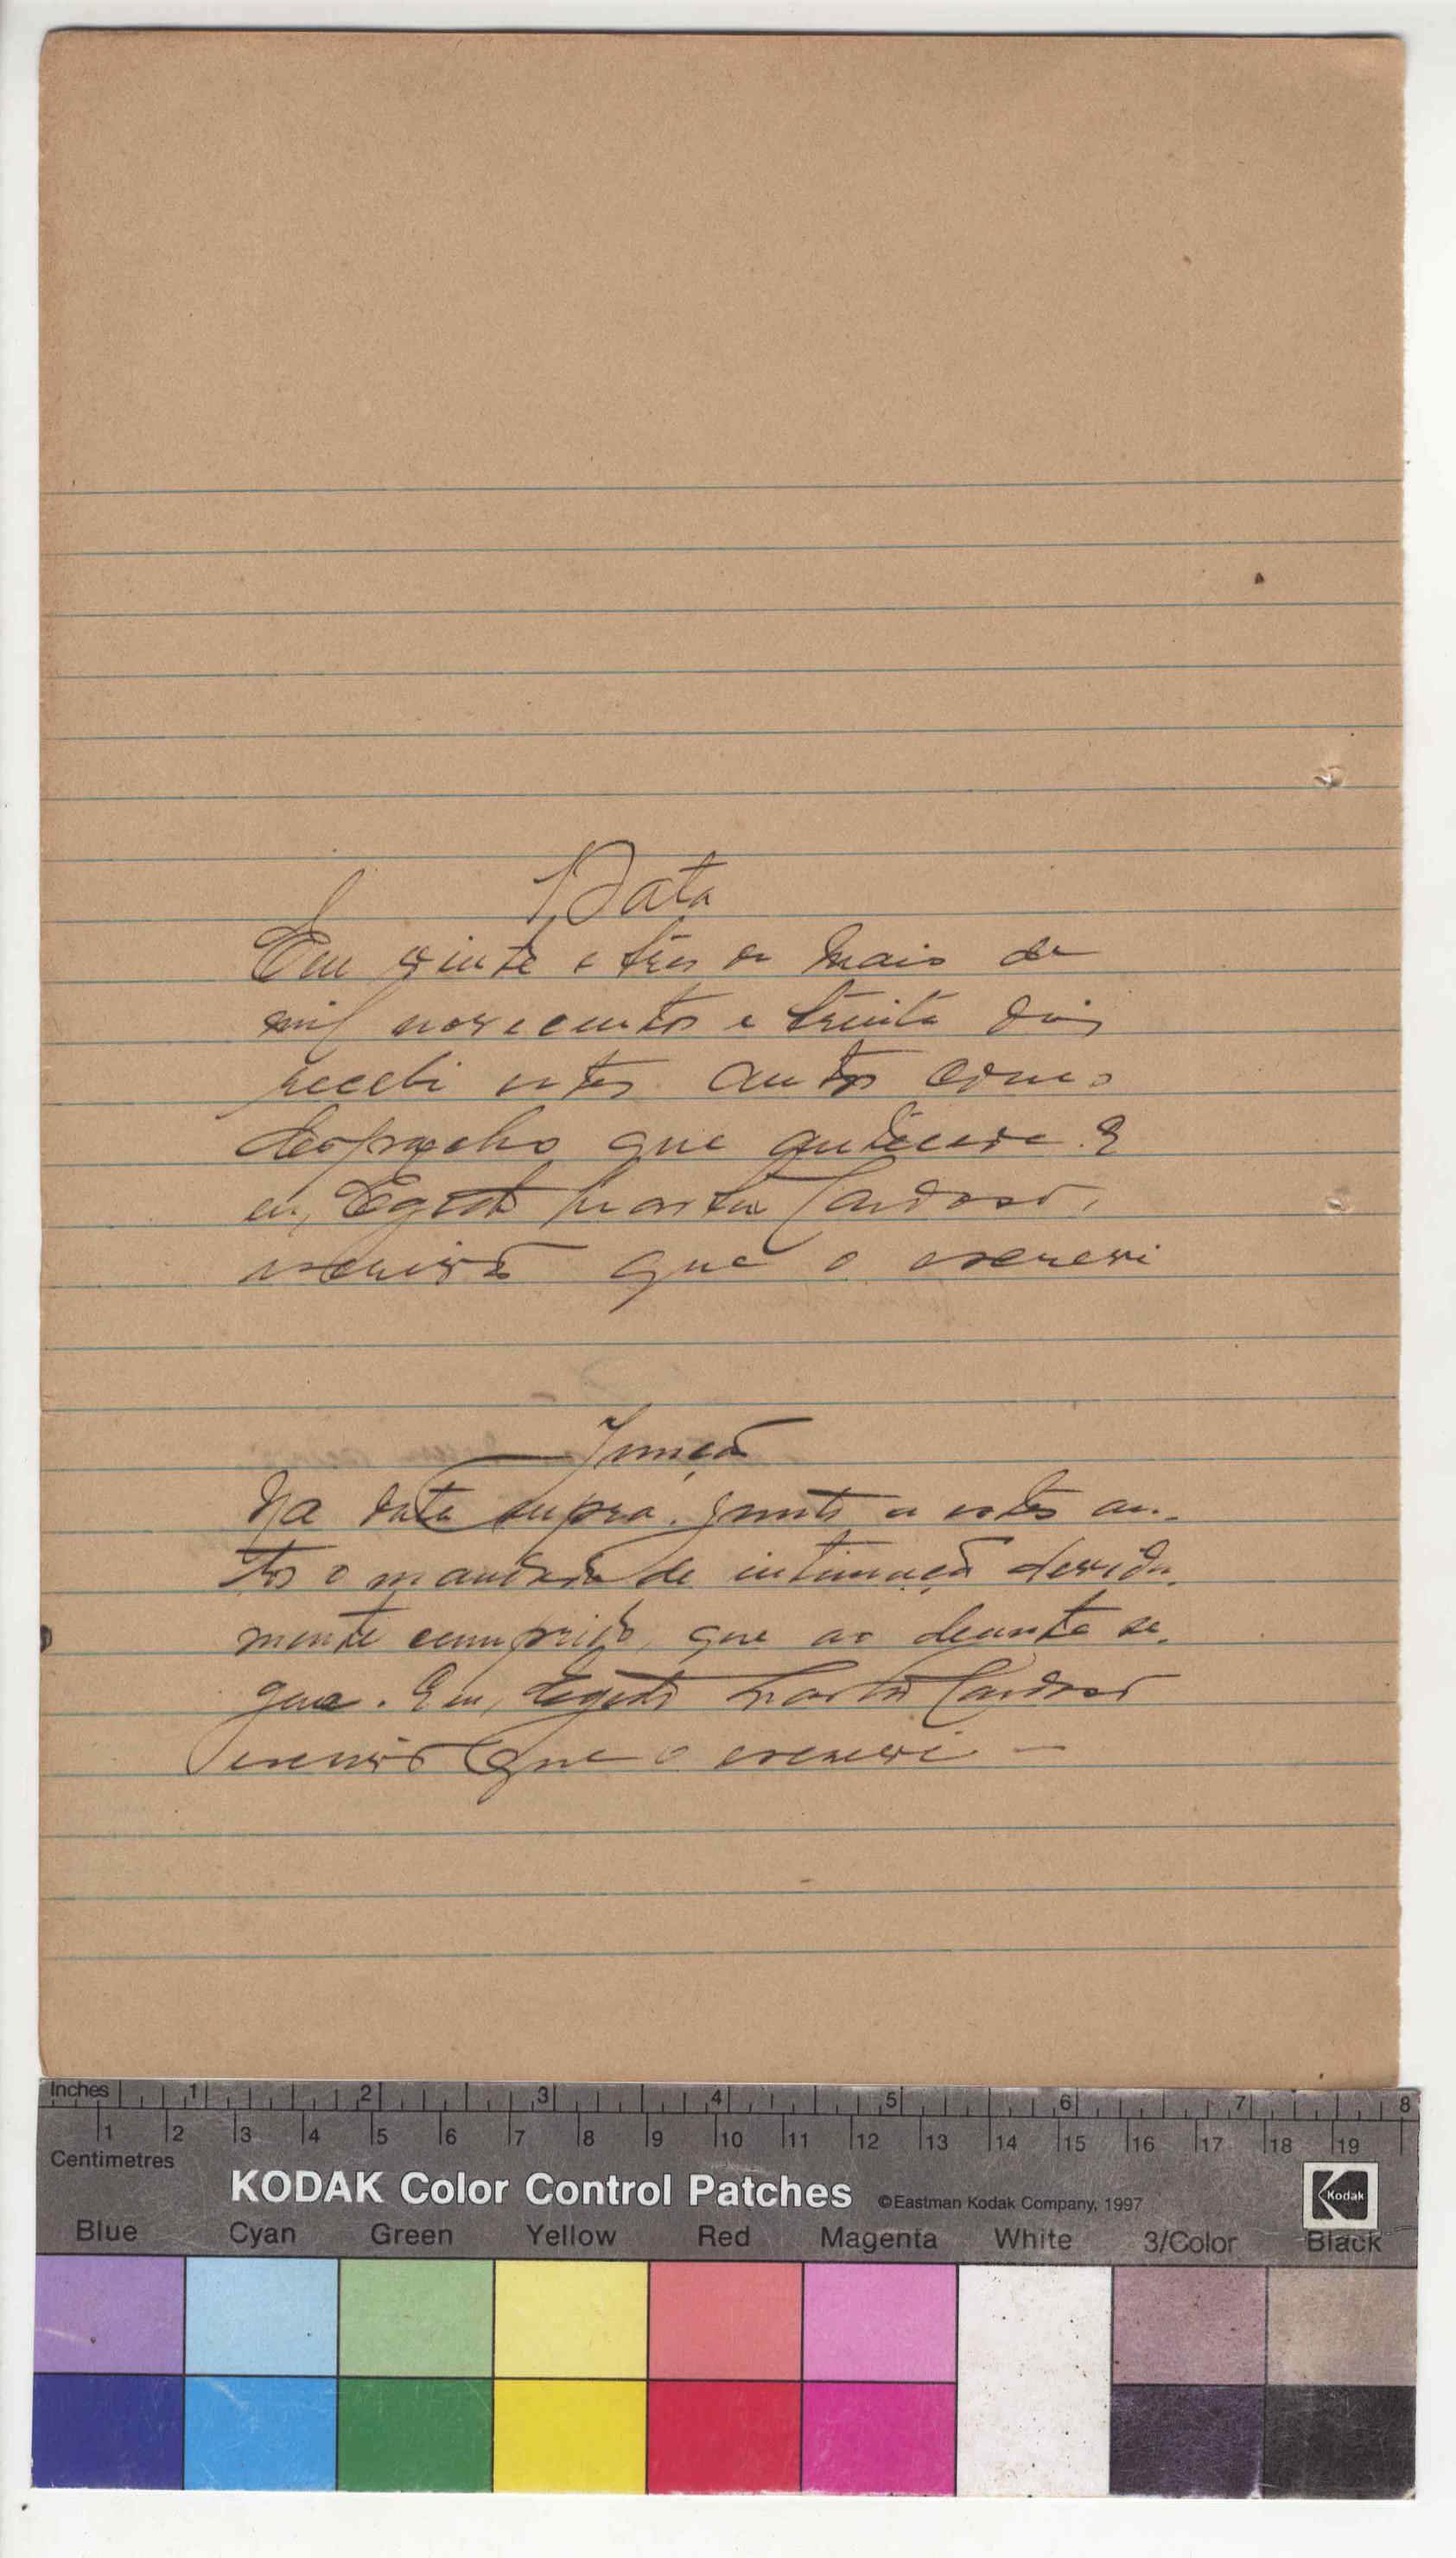 Data
Em vinte e tres de Maio de
mil novecentos e trinta dois
recebi estes autos com o
despacho que antecede. E
eu, Egidio Cardoso,
escrivão que o escrevi
Junção
Na data supra, junto a estes au-
tos o mandado de intimação devida-
mente cumprido, que ao deante se-
gue. Eu, Egidio Cardoso
escrivão que o escrevi -
Inches 1 2 3 4 5 6 7 8
1 2 3 4 5 6 7 8 9 10 11 12 13 14 15 16 17 18 19
Centimetres
KODAK Color Control Patches ©Eastman Kodak Company, 1997 Kodak
Blue Cyan Green Yellow Red Magenta White 3/Color Black